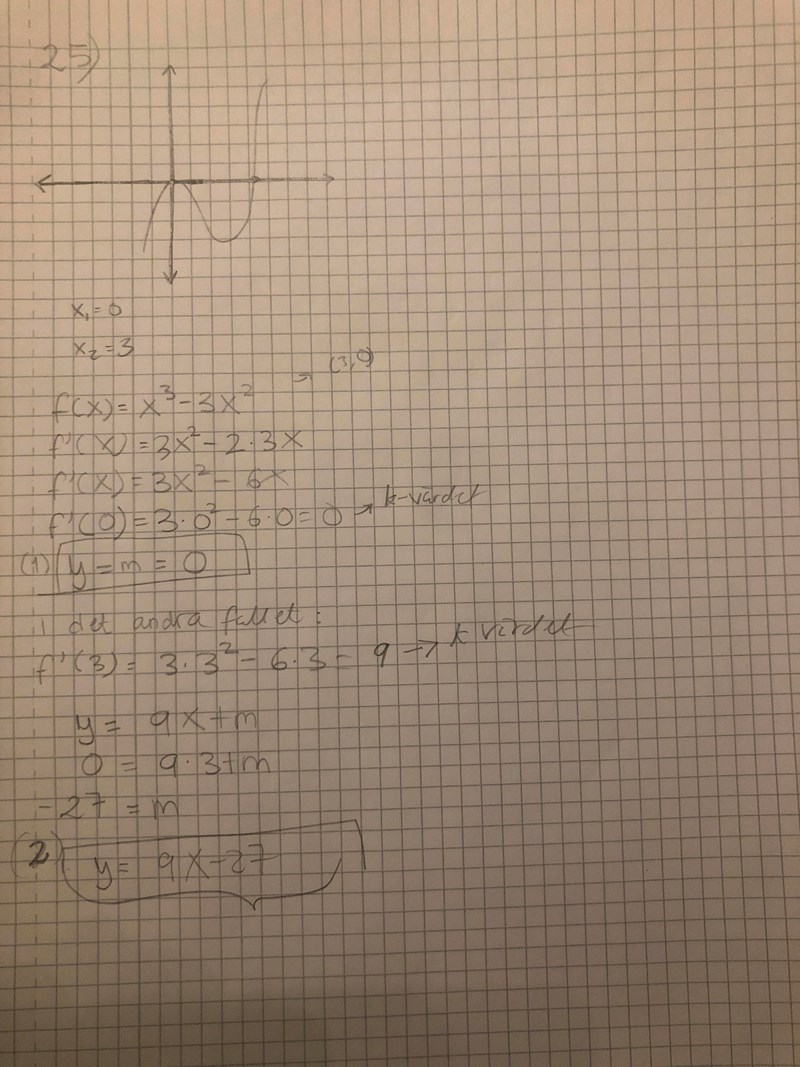 25)
x₁=0
x₂=3
→ (3,0)
f(x)= x³-3x²
f'(x)=3x²-2·3x
f'(x)=3x²- 6x
f'(0)=3·0²-6·0=0 → k-värdet
(1) y=m=0
i det andra fallet:
f'(3)= 3·3²- 6·3= 9 → k värdet
y= 9x+m
0 = 9·3+m
-27 = m
(2) y= 9x-27